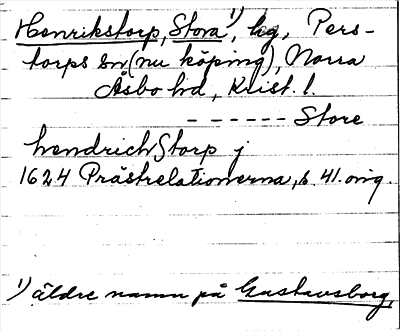 Henrikstorp, Stora ¹⁾, hg, Pers-
torps sn (nu köping), Norra
Åsbo hd, Krist. l.
- - - - - - Store
hendrichStorp j
1624 Prästrelationerna, s. 41. orig.
¹⁾ äldre namn på Gustavsborg,